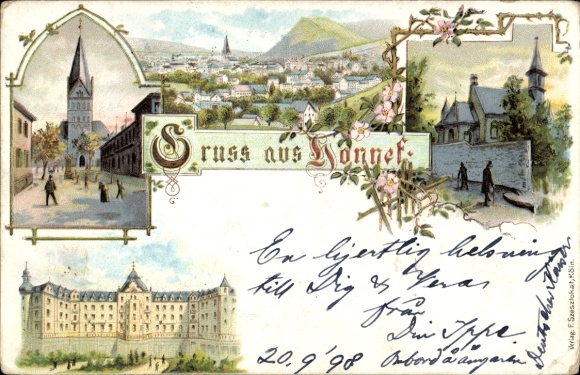 Gruss aus Honnef.
En hjertlig helsning
till Dig & Vera
från
Din Ippe
20.9/98 Ombord å ångaren
Deutscher Kaiser
Verlag F. Szesztokat, Köln.